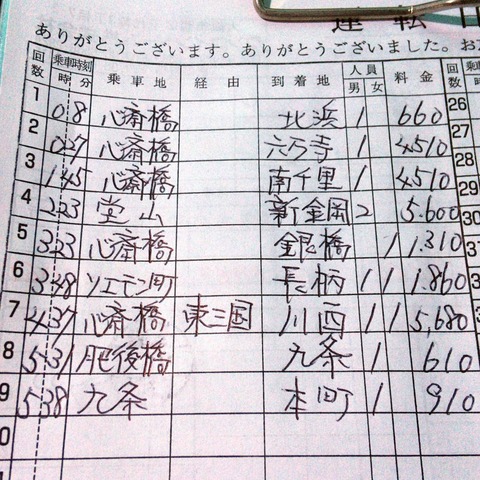 運転
ありがとうございます。ありがとうございました。お
回数 乗車時刻 時 分 乗車地 経由 到着地 人員 男 女 料金 回数 乗車
1 0 8 心斎橋 北浜 1 660 26
2 0 27 心斎橋 六万寺 1 4510 27
3 1 45 心斎橋 南千里 1 4510 28
4 2 23 堂山 新金岡 2 5.600 29
5 3 23 心斎橋 銀橋 1 1.310 30
6 3 48 ソエモン町 長柄 1 1 1.860
7 4 37 心斎橋 東三国 川西 1 1 5,680
8 5 31 肥後橋 九条 1 610
9 5 38 九条 本町 1 910
0